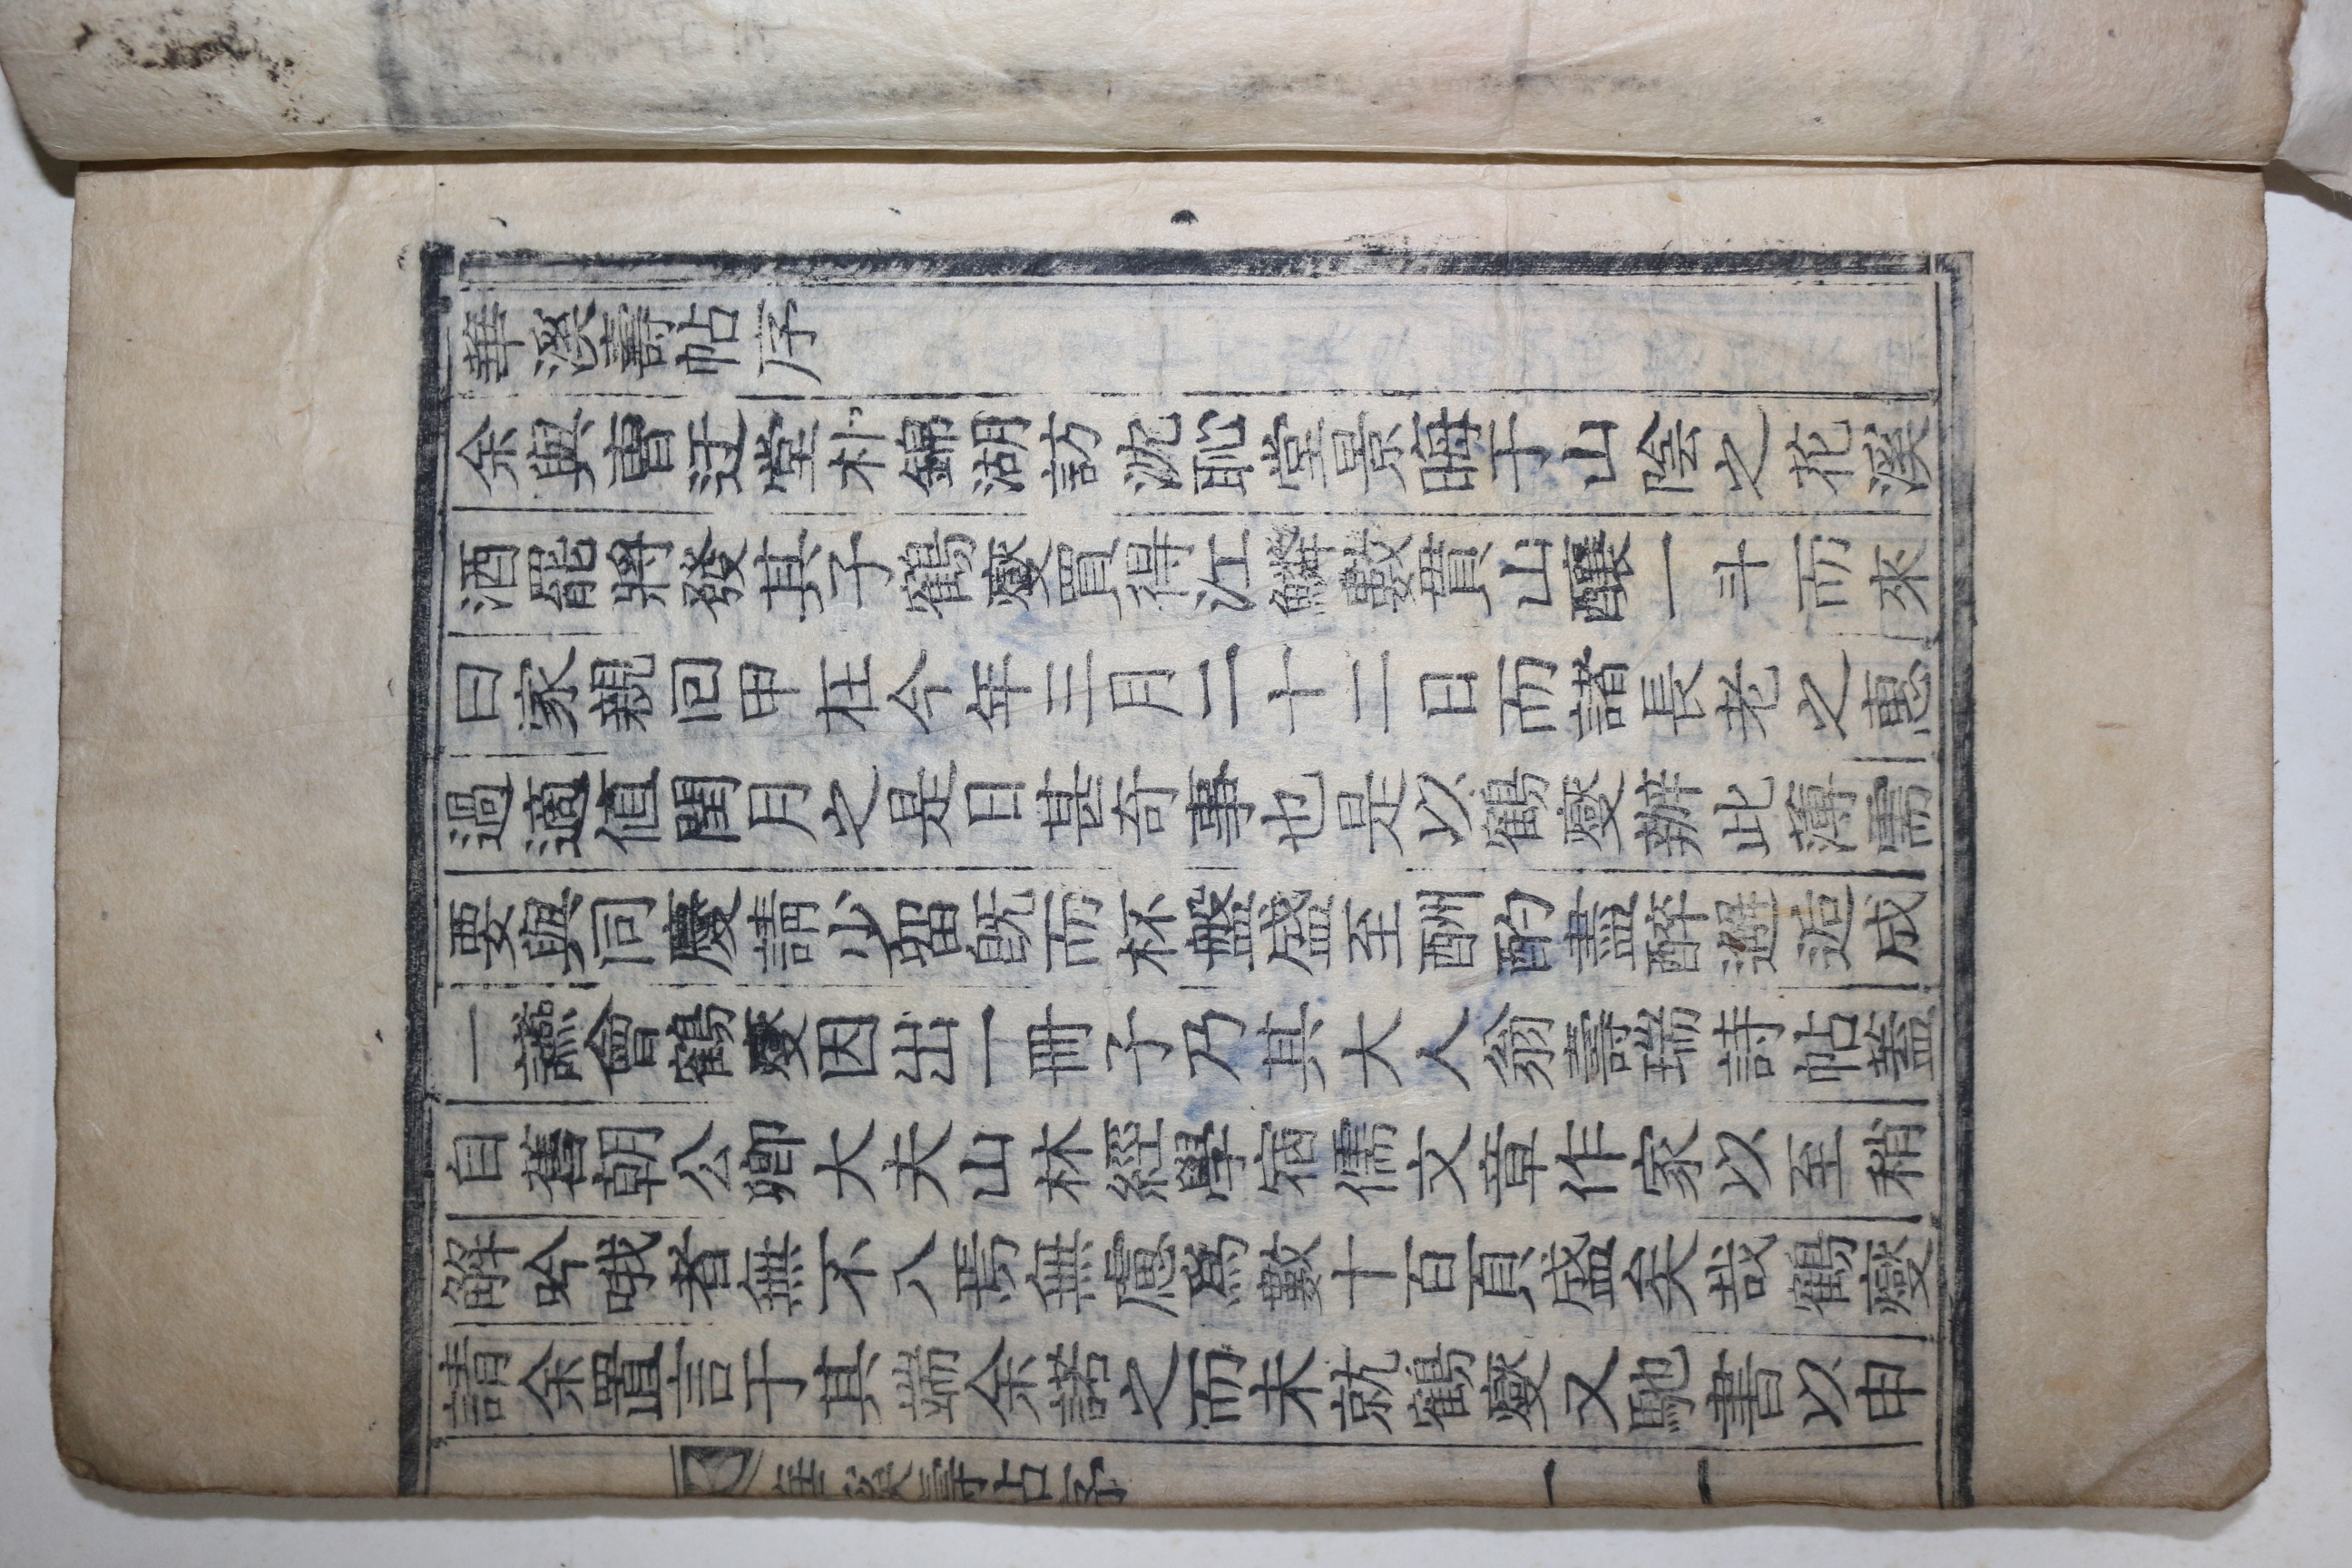 華溪壽帖序
余與曺迂堂朴錦湖訪沈恥堂景晦于山陰之花溪
酒罷將發其子鶴燮買得江鱗數貫山釀一斗而來
曰家親回甲在今年三月二十二日而諸長老之惠
過適値閏月之是日甚奇事也是以鶴燮辦此薄需
要與同慶請少留旣而杯盤盛至酬酌盡醉邂逅成
一讌會鶴燮因出一冊子乃其大人翁壽瑞詩帖蓋
自舊朝公卿大夫山林經學宿儒文章作家以至稍
解吟哦者無不入焉無慮爲數十百頁盛矣哉鶴燮
請余置言于其端余諾之而未就鶴燮又馳書以申
華溪壽帖序
一